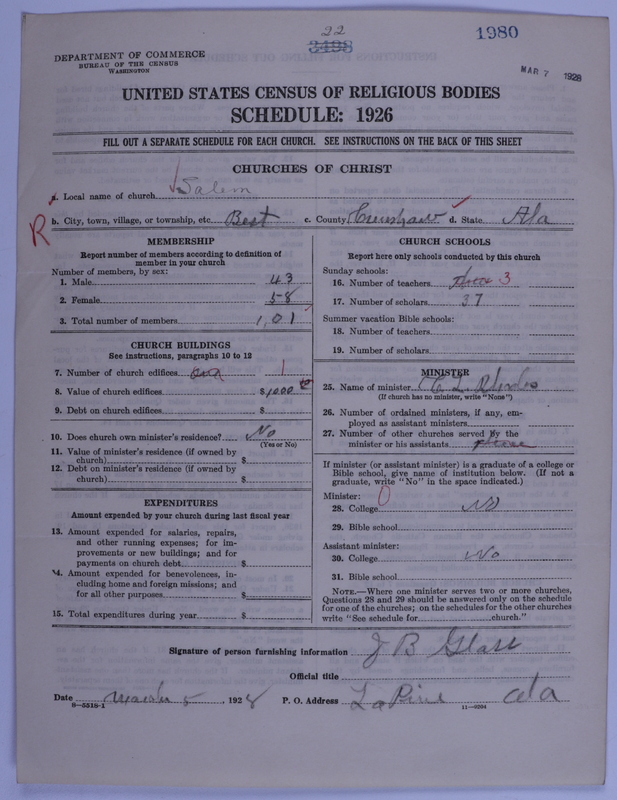 22
3498
1980
DEPARTMENT OF COMMERCE
BUREAU OF THE CENSUS
WASHINGTON
MAR 7 1928
UNITED STATES CENSUS OF RELIGIOUS BODIES
SCHEDULE: 1926
FILL OUT A SEPARATE SCHEDULE FOR EACH CHURCH. SEE INSTRUCTIONS ON THE BACK OF THIS SHEET
CHURCHES OF CHRIST
a. Local name of church Salem
R b. City, town, village, or township, etc. Best c. County Crenshaw d. State Ala
MEMBERSHIP
Report number of members according to definition of
member in your church
Number of members, by sex:
1. Male 43
2. Female 58
3. Total number of members 101
CHURCH BUILDINGS
See instructions, paragraphs 10 to 12
7. Number of church edifices one 1
8. Value of church edifices $1000
9. Debt on church edifices $
10. Does church own minister's residence? No
(Yes or No)
11. Value of minister's residence (if owned by
church) $
12. Debt on minister's residence (if owned by
church) $
EXPENDITURES
Amount expended by your church during last fiscal year
13. Amount expended for salaries, repairs,
and other running expenses; for im-
provements or new buildings; and for
payments on church debt $
14. Amount expended for benevolences, in-
cluding home and foreign missions; and
for all other purposes $
15. Total expenditures during year $
CHURCH SCHOOLS
Report here only schools conducted by this church
Sunday schools:
16. Number of teachers three 3
17. Number of scholars 37
Summer vacation Bible schools:
18. Number of teachers
19. Number of scholars
MINISTER
25. Name of minister C L Rhodes
(If church has no minister, write "None")
26. Number of ordained ministers, if any, em-
ployed as assistant ministers
27. Number of other churches served by the
minister or his assistants
If minister (or assistant minister) is a graduate of a college or
Bible school, give name of institution below. (If not a
graduate, write "No" in the space indicated.)
Minister: 0
28. College No
29. Bible school
Assistant minister:
30. College No
31. Bible school
NOTE.—Where one minister serves two or more churches,
Questions 28 and 29 should be answered only on the schedule
for one of the churches; on the schedules for the other churches
write "See schedule for church."
Signature of person furnishing information J B Glass
Official title
Date March 5, 1928 P. O. Address LaPine Ala
8—5518-1 11—9204